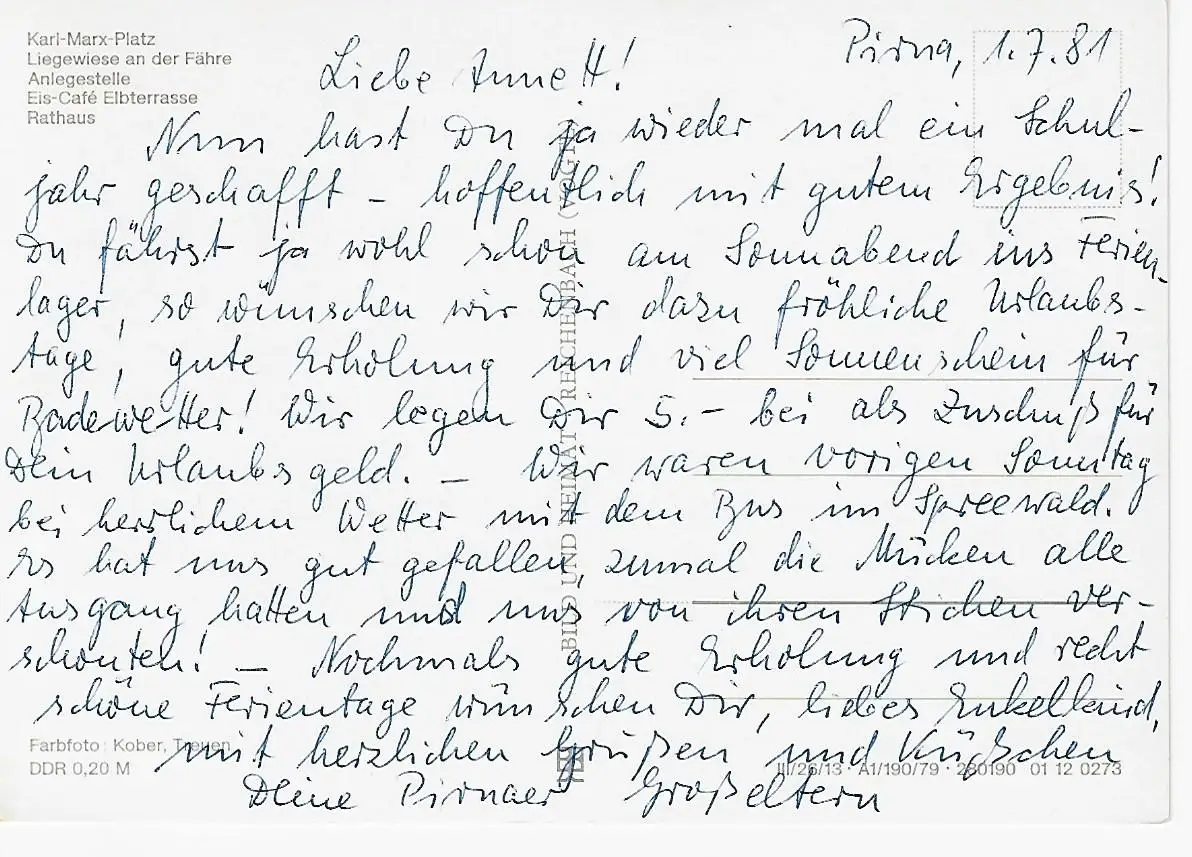 Karl-Marx-Platz
Liegewiese an der Fähre
Anlegestelle
Eis-Café Elbterrasse
Rathaus
Pirna, 1.7.81
Liebe Annett!
Nun hast Du ja wieder mal ein Schul-
jahr geschafft – hoffentlich mit gutem Ergebnis!
Du fährst ja wohl schon am Sonnabend ins Ferien-
lager, so wünschen wir Dir dazu fröhliche Urlaubs-
tage, gute Erholung und viel Sonnenschein für
Badewetter! Wir legen Dir 5.– bei als Zuschuß für
Dein Urlaubsgeld. – Wir waren vorigen Sonntag
bei herrlichem Wetter mit dem Bus im Spreewald.
Es hat uns gut gefallen, zumal die Mücken alle
Ausgang hatten und uns von ihren Stichen ver-
schonten! – Nochmals gute Erholung und recht
schöne Ferientage wünschen Dir, liebes Enkelkind,
mit herzlichen Grüßen und Küßchen
Deine Pirnaer Großeltern
BILD UND HEIMAT REICHENBACH
Farbfoto: Kober, Treuen
DDR 0,20 M
III/26/13 · A1/190/79 · 280190 01 12 0273